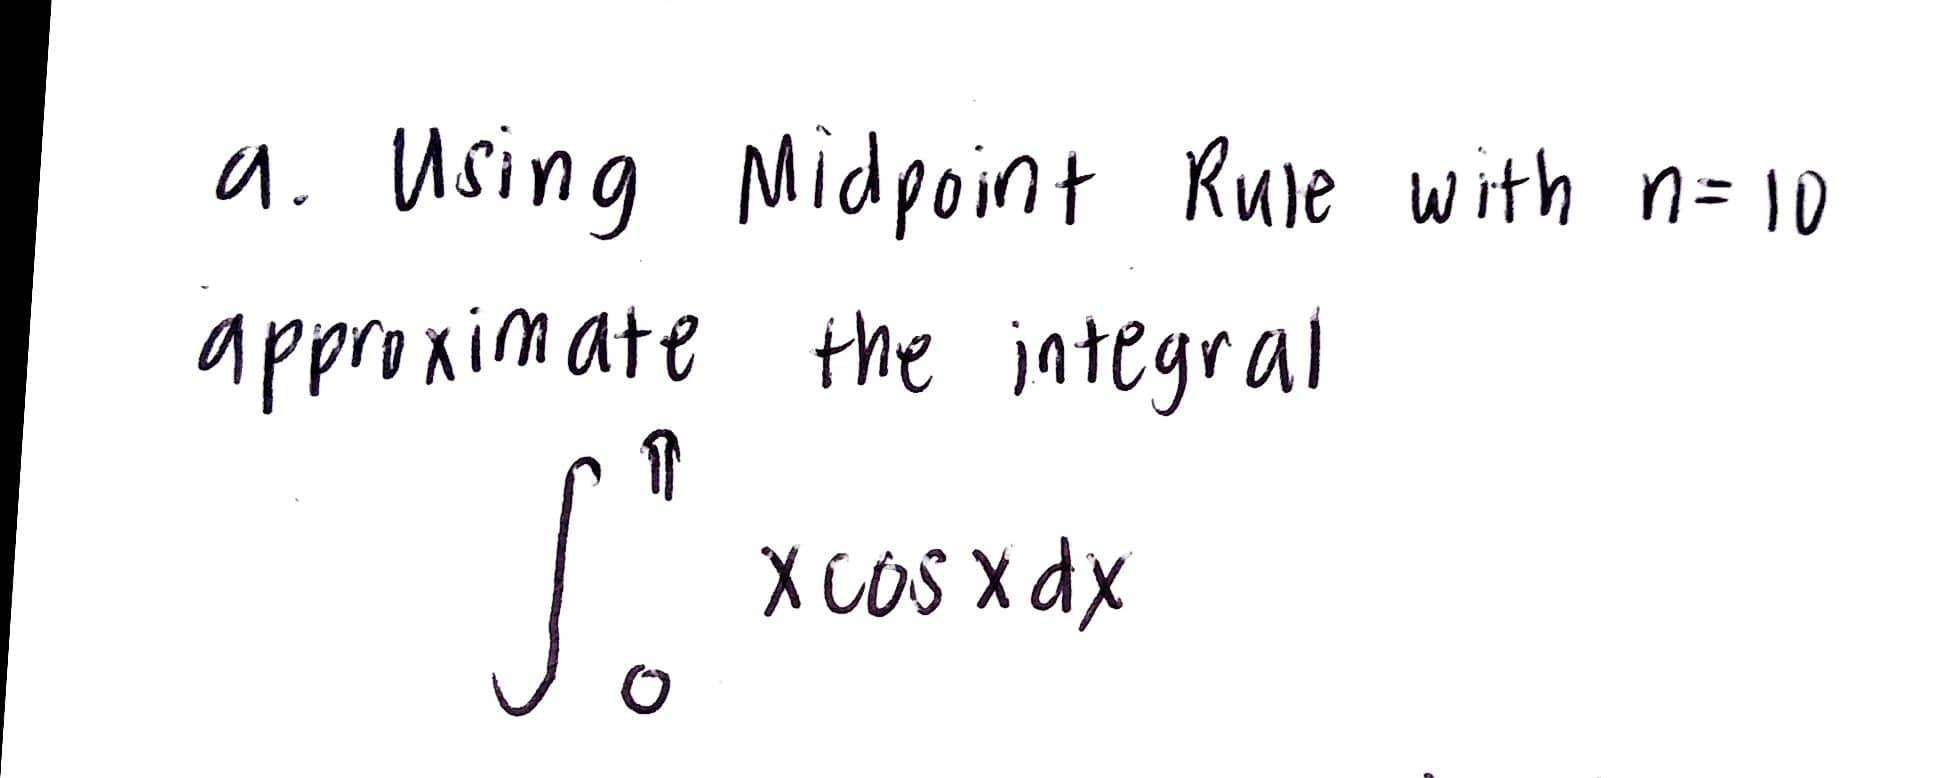 a. Using Midpoint Rule with n=10
approximate the integral
∫₀^π x cos x dx